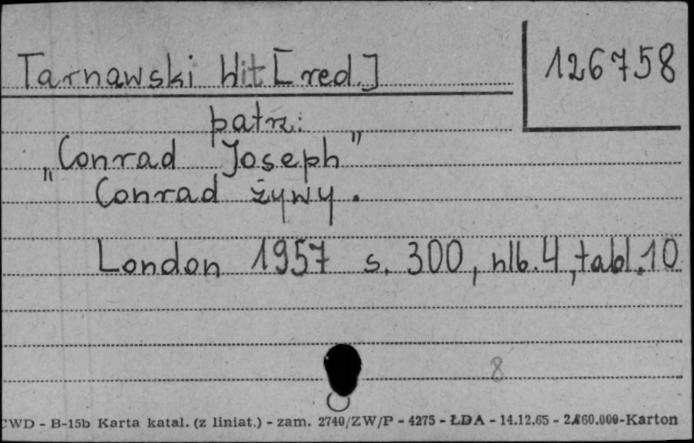 Tarnawski Wit [red.]
126758
patrz:
„Conrad Joseph”
Conrad żywy.
London 1957 s. 300, nlb. 4, tabl. 10
8
CWD - B-15b Karta katal. (z liniat.) - zam. 2740/ZW/P - 4275 - ŁDA - 14.12.65 - 2.860.000-Karton